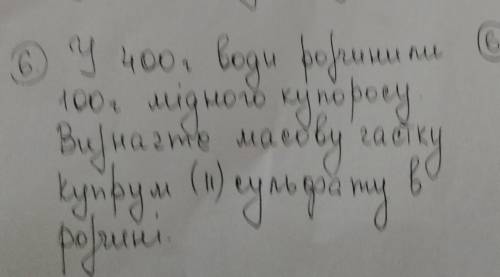 6 У 400г води розчинили
100г мідного купоросу.
Визначте масову частку
купрум (II) сульфату в
розчині.